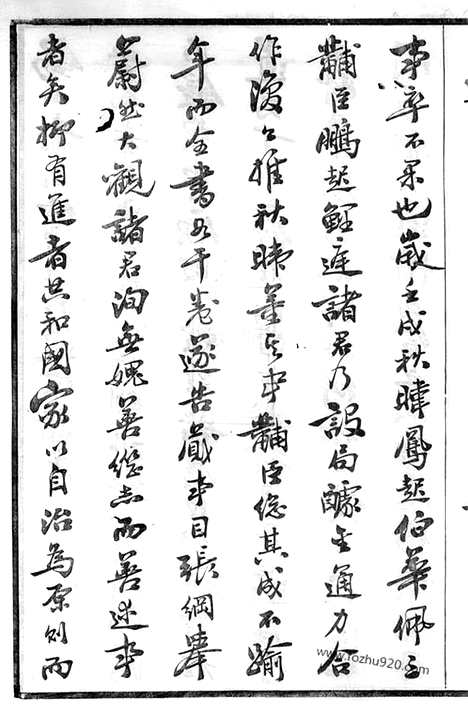 事卒不果也歲壬戌秋暐鳳起伯華佩玉
黼臣鵬起鯉庭諸君乃設局醵金通力合
作復公推秋暐董其事黼臣總其成不踰
年而全書若干卷遂告蕆事目張綱舉
蔚然大觀諸君洵無愧善繼志而善述事
者矣抑有進者共和國家以自治為原則而
www.fozhu920.com